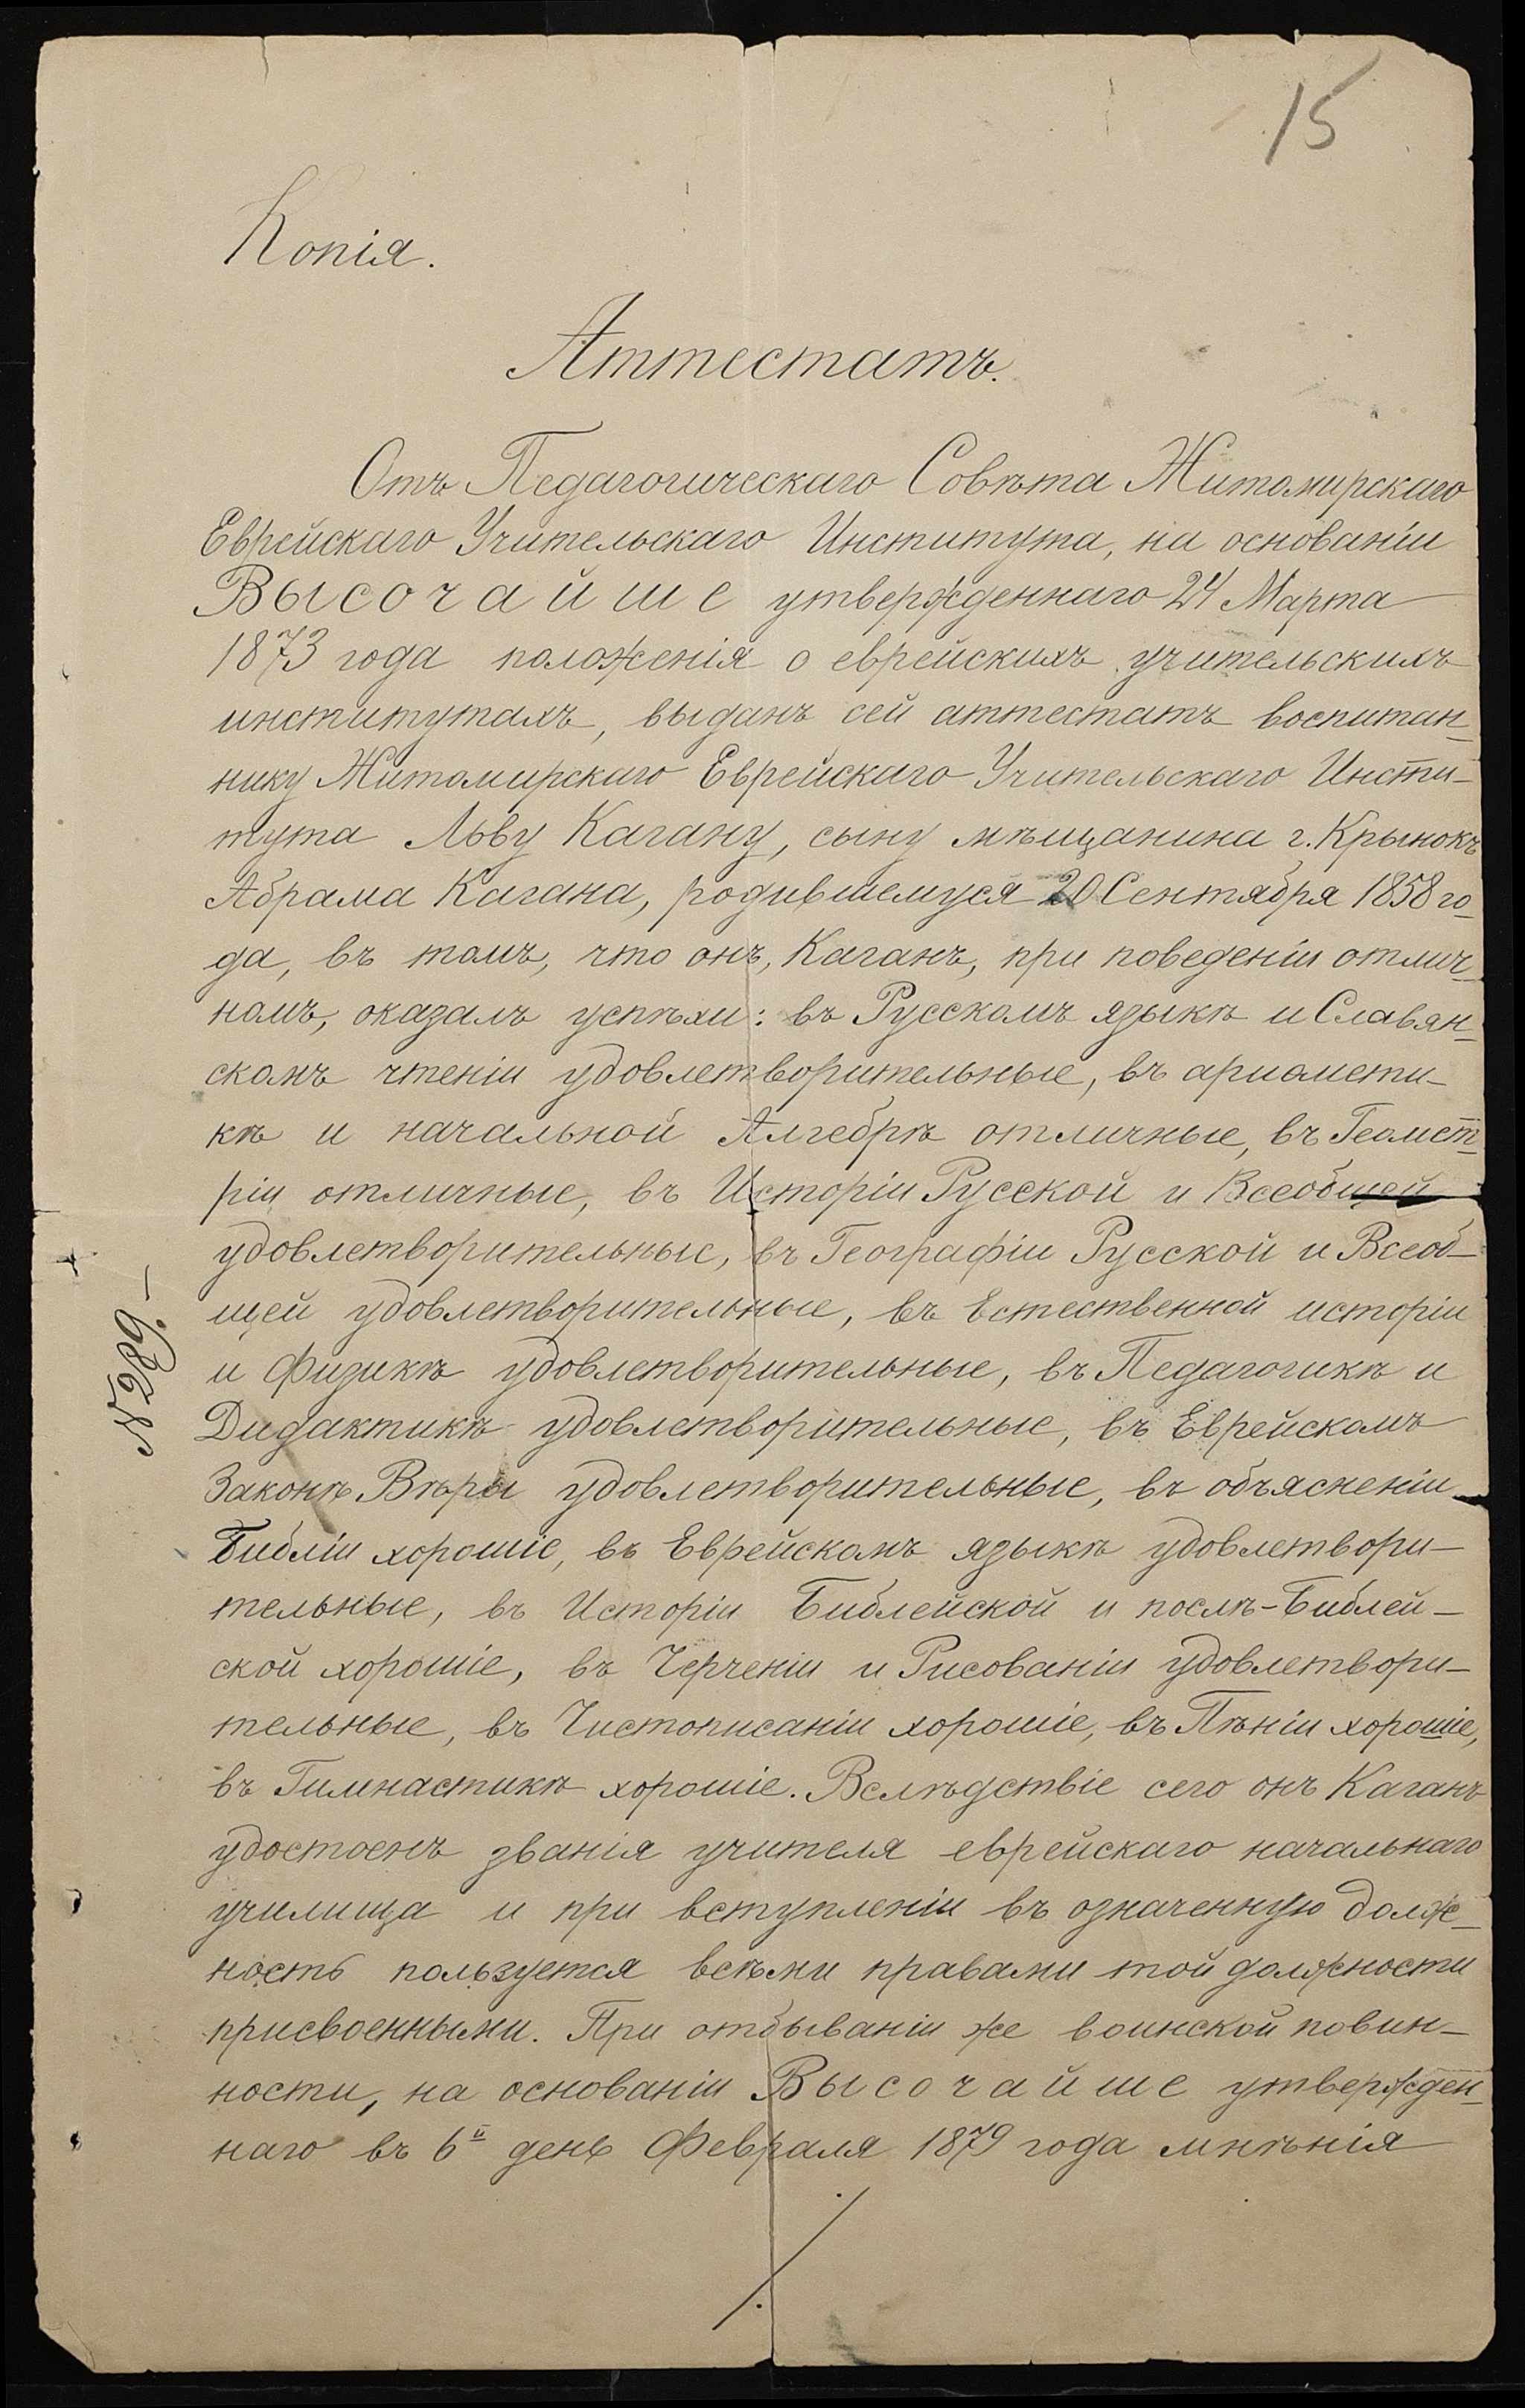 15
Копія.
Аттестатъ.
Отъ Педагогическаго Совѣта Житомирскаго
Еврейскаго Учительскаго Института, на основаніи
Высочайше утвержденнаго 24 Марта
1873 года положенія о еврейскихъ учительскихъ
институтахъ, выданъ сей аттестатъ воспитан-
нику Житомирскаго Еврейскаго Учительскаго Инсти-
тута Льву Кагану, сыну мѣщанина г. Крынокъ
Абрама Кагана, родившемуся 20 Сентября 1858 го-
да, въ томъ, что онъ, Каганъ, при поведеніи отлич-
номъ, оказалъ успѣхи: въ Русскомъ языкѣ и Славян-
скомъ чтеніи удовлетворительные, въ ариѳмети-
кѣ и начальной Алгебрѣ отличные, въ Геомет-
ріи отличные, въ Исторіи Русской и Всеобщей
удовлетворительные, въ Географіи Русской и Всеоб-
щей удовлетворительные, въ Естественной исторіи
и Физикѣ удовлетворительные, въ Педагогикѣ и
Дидактикѣ удовлетворительные, въ Еврейскомъ
Законѣ Вѣры удовлетворительные, въ объясненіи
Библіи хорошіе, въ Еврейскомъ языкѣ удовлетвори-
тельные, въ Исторіи Библейской и послѣ-Библей-
ской хорошіе, въ Черченіи и Рисованіи удовлетвори-
тельные, въ Чистописаніи хорошіе, въ Пѣніи хорошіе,
въ Гимнастикѣ хорошіе. Вслѣдствіе сего онъ Каганъ
удостоенъ званія учителя еврейскаго начальнаго
училища и при вступленіи въ означенную долж-
ность пользуется всѣми правами той должности
присвоенными. При отбываніи же воинской повин-
ности, на основаніи Высочайше утвержден-
наго въ 6й день Февраля 1879 года мнѣнія